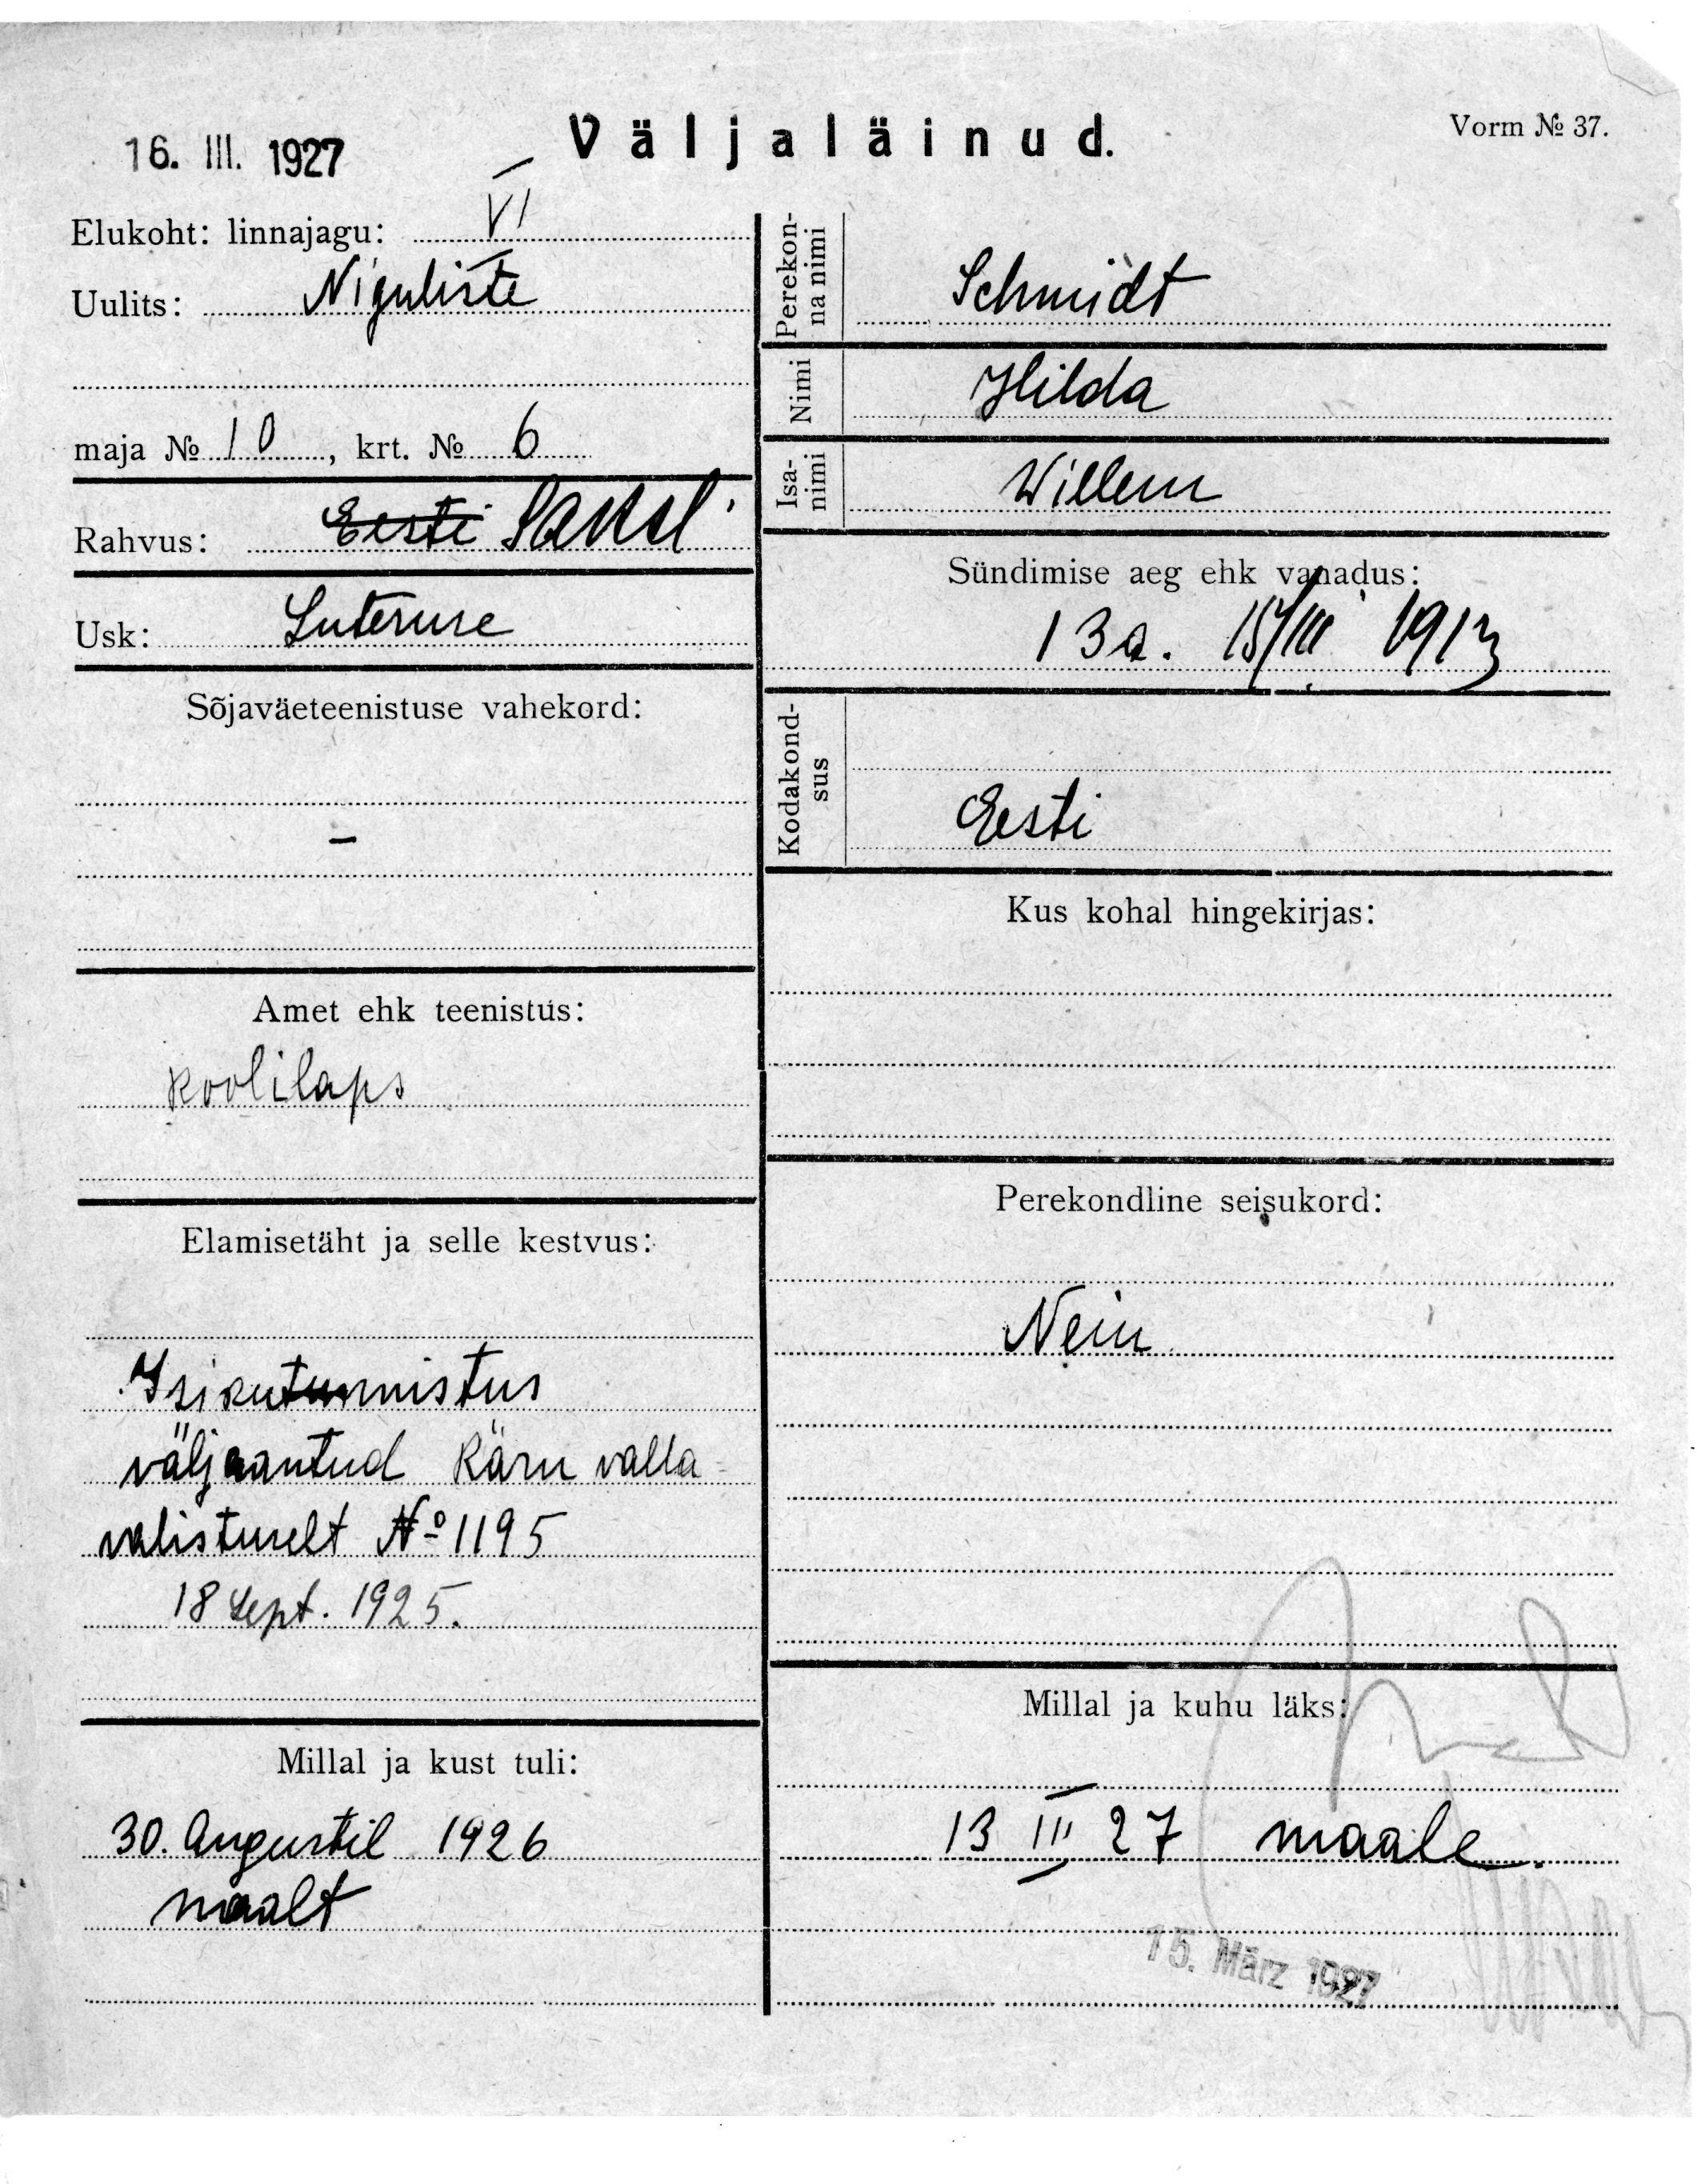 16. III. 1927
Väljaläinud.
Vorm № 37.
Elukoht: linnajagu: VI
Uulits: Niguliste
maja № 10, krt. № 6
Rahvus: Eesti Saksl
Usk: Luteruse
Sõjaväeteenistuse vahekord:
–
Amet ehk teenistus:
koolilaps
Elamisetäht ja selle kestvus:
Isikutunnistus
väljaantud Käru valla-
valistuselt № 1195
18 Sept. 1925.
Millal ja kust tuli:
30. Augustil 1926
maalt
Perekon-
na nimi
Schmidt
Nimi
Hilda
Isa-
nimi
Willem
Sündimise aeg ehk vanadus:
13a. 15/III 1913
Kodakond-
sus
Eesti
Kus kohal hingekirjas:
Perekondline seisukord:
Nein
Millal ja kuhu läks:
13 III 27 maale.
15. März 1927